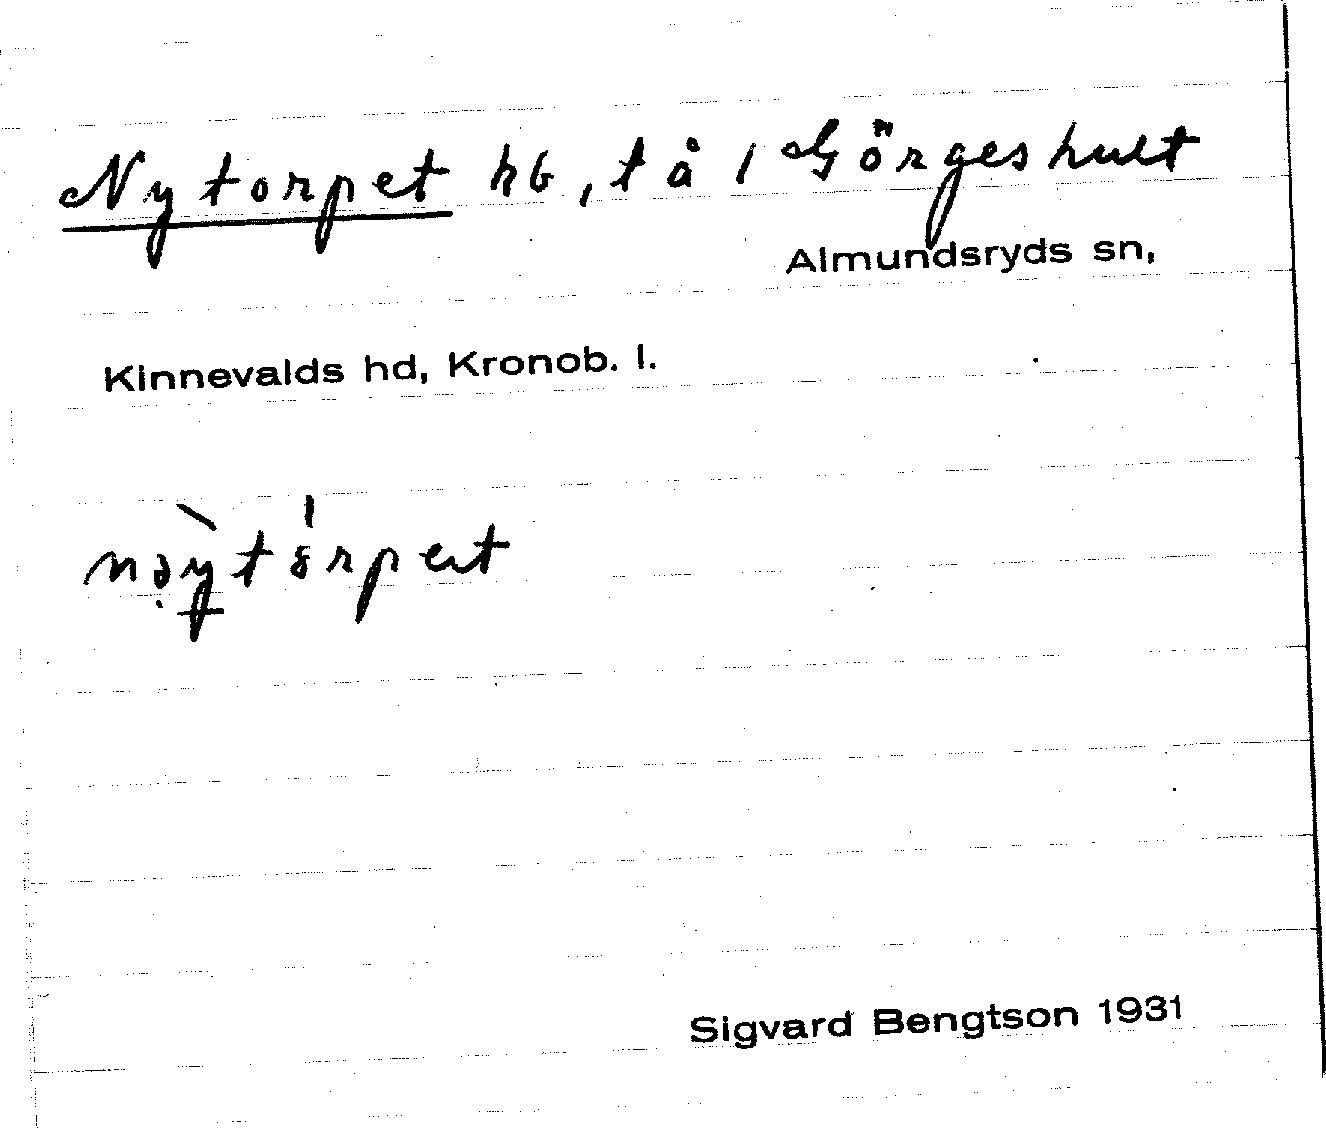 Nytorpet hb, t å 1 Görgeshult
Almundsryds sn,
Kinnevalds hd, Kronob. l.
Sigvard Bengtson 1931